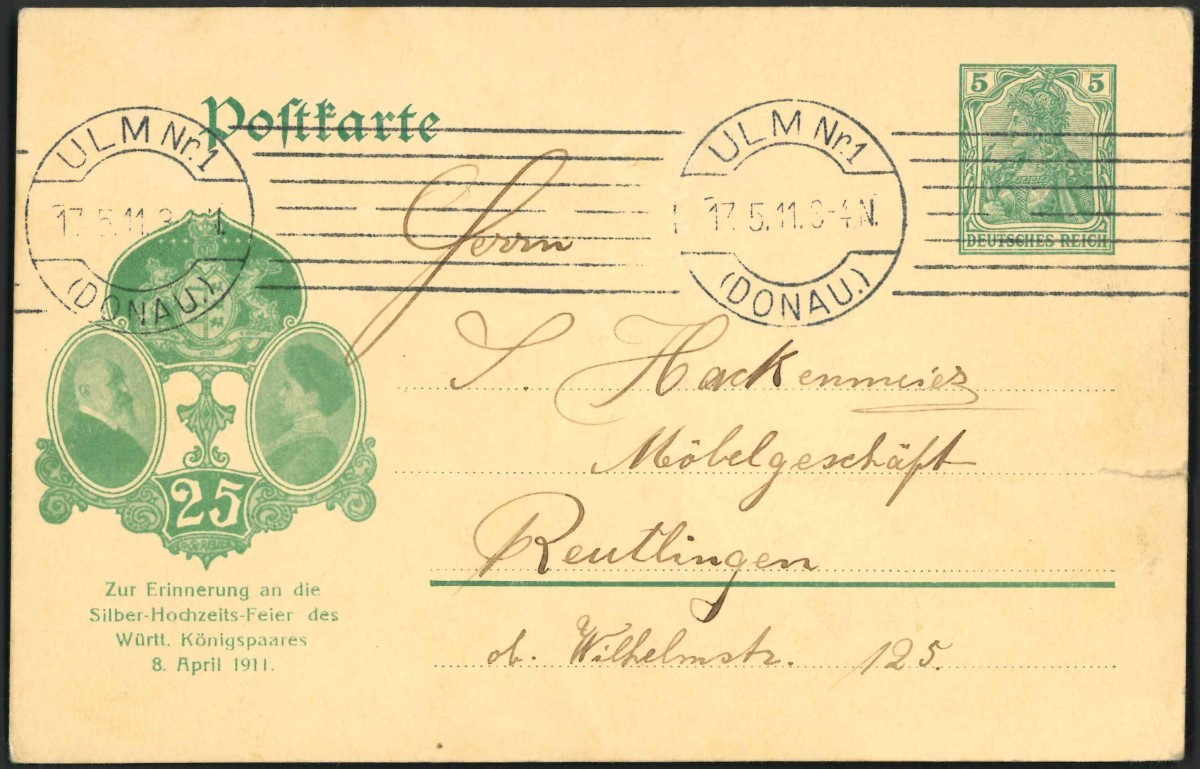 Postkarte
ULM Nr. 1
17.5.11. 3
(DONAU.)
ULM Nr. 1
17.5.11. 3-4 N.
(DONAU.)
5 5
DEUTSCHES REICH
Herrn
S. Hackenmeier
Möbelgeschäft
Reutlingen
ob. Wilhelmstr. 125.
25
Zur Erinnerung an die
Silber-Hochzeits-Feier des
Württ. Königspaares
8. April 1911.